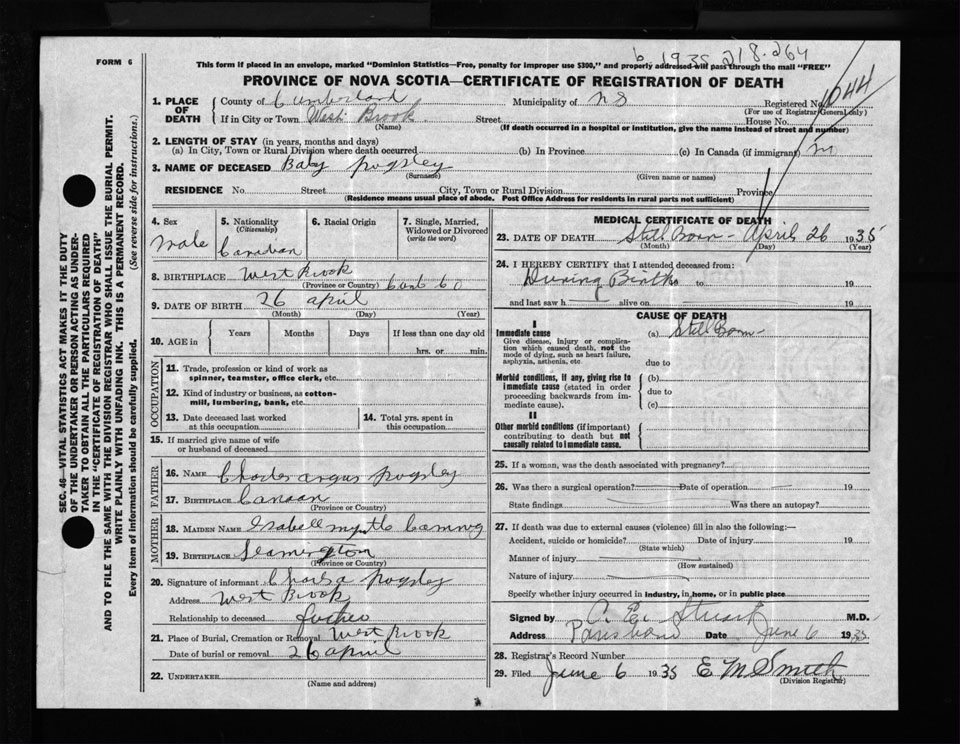 FORM 6
This form if placed in an envelope, marked "Dominion Statistics—Free, penalty for improper use $300," and properly addressed will pass through the mail "FREE"
PROVINCE OF NOVA SCOTIA—CERTIFICATE OF REGISTRATION OF DEATH
1. PLACE OF DEATH County of Cumberland Municipality of NS Registered No. 1044
(For use of Registrar General only)
If in City or Town West Brook Street House No.
(Name) (If death occurred in a hospital or institution, give the name instead of street and number)
2. LENGTH OF STAY (in years, months and days)
(a) In City, Town or Rural Division where death occurred (b) In Province (c) In Canada (if immigrant)
3. NAME OF DECEASED Baby Pogsley
(Surname) (Given name or names)
RESIDENCE No. Street City, Town or Rural Division Province
(Residence means usual place of abode. Post Office Address for residents in rural parts not sufficient)
SEC. 46—VITAL STATISTICS ACT MAKES IT THE DUTY
OF THE UNDERTAKER OR PERSON ACTING AS UNDER-
TAKER TO OBTAIN ALL THE PARTICULARS REQUIRED
IN THE "CERTIFICATE OF REGISTRATION OF DEATH"
AND TO FILE THE SAME WITH THE DIVISION REGISTRAR WHO SHALL ISSUE THE BURIAL PERMIT.
WRITE PLAINLY WITH UNFADING INK. THIS IS A PERMANENT RECORD.
Every item of information should be carefully supplied. (See reverse side for instructions.)
4. Sex 5. Nationality (Citizenship) 6. Racial Origin 7. Single, Married, Widowed or Divorced (write the word)
Male Canadian
8. BIRTHPLACE West Brook
(Province or Country)
9. DATE OF BIRTH 26 April
(Month) (Day) (Year)
10. AGE in Years Months Days If less than one day old
hrs. or min.
OCCUPATION
11. Trade, profession or kind of work as
spinner, teamster, office clerk, etc.
12. Kind of industry or business, as cotton-
mill, lumbering, bank, etc.
13. Date deceased last worked
at this occupation
14. Total yrs. spent in
this occupation
15. If married give name of wife
or husband of deceased
FATHER
16. NAME Charles Angus Pogsley
17. BIRTHPLACE Canaan
(Province or Country)
MOTHER
18. MAIDEN NAME Isabell Myrtle
19. BIRTHPLACE Leamington
(Province or Country)
20. Signature of informant Charls A Pogsley
Address West Brook
Relationship to deceased father
21. Place of Burial, Cremation or Removal West Brook
Date of burial or removal 26 April
22. UNDERTAKER
(Name and address)
MEDICAL CERTIFICATE OF DEATH
23. DATE OF DEATH Still Born - April 26 1935
(Month) (Day) (Year)
24. I HEREBY CERTIFY that I attended deceased from:
During Birth to 19
and last saw h alive on 19
CAUSE OF DEATH
I
Immediate cause (a) Still Born -
Give disease, injury or complica-
tion which caused death, not the
mode of dying, such as heart failure,
asphyxia, asthenia, etc. due to
Morbid conditions, if any, giving rise to (b)
immediate cause (stated in order due to
proceeding backwards from im-
mediate cause). (c)
II
Other morbid conditions (if important)
contributing to death but not
causally related to immediate cause.
25. If a woman, was the death associated with pregnancy?
26. Was there a surgical operation? Date of operation 19
State findings Was there an autopsy?
27. If death was due to external causes (violence) fill in also the following:—
Accident, suicide or homicide? Date of injury 19
(State which)
Manner of injury
(How sustained)
Nature of injury
Specify whether injury occurred in industry, in home, or in public place
Signed by A. E. Stuart M.D.
Address Parrsboro Date June 6 1935
28. Registrar's Record Number
29. Filed June 6 1935 E M Smith
(Division Registrar)